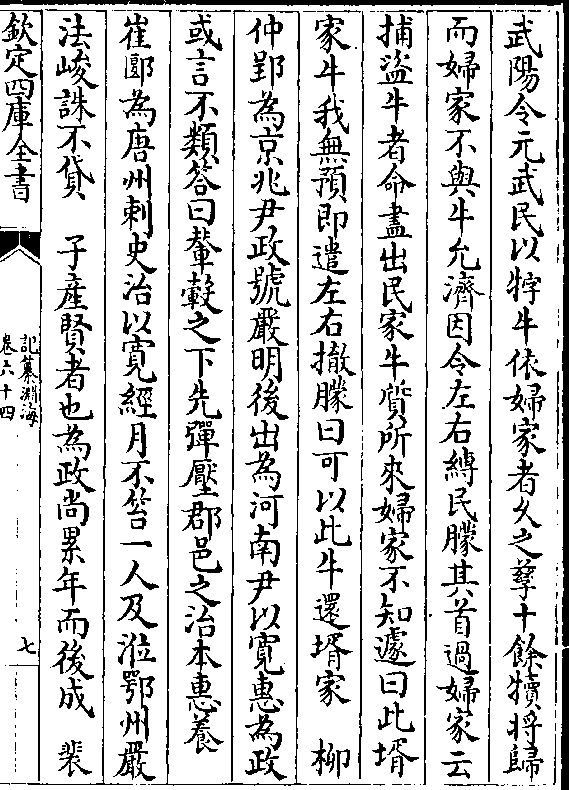 武陽令元武民以牸牛依婦家者久之孳十餘犢将歸
而婦家不與牛允濟因令左右縛民朦其首過婦家云
捕盗牛者命盡出民家牛質所來婦家不知遽曰此壻
家牛我無預即遣左右撤朦曰可以此牛還壻家　柳
仲郢為京兆尹政號嚴明後出為河南尹以寛惠為政
或言不類答曰輦轂之下先彈壓郡邑之治本惠養
崔郾為唐州刺史治以寛經月不笞一人及涖鄂州嚴
法峻誅不貸　子產賢者也為政尚累年而後成　裴
欽定四庫全書
記纂淵海
卷六十四
七